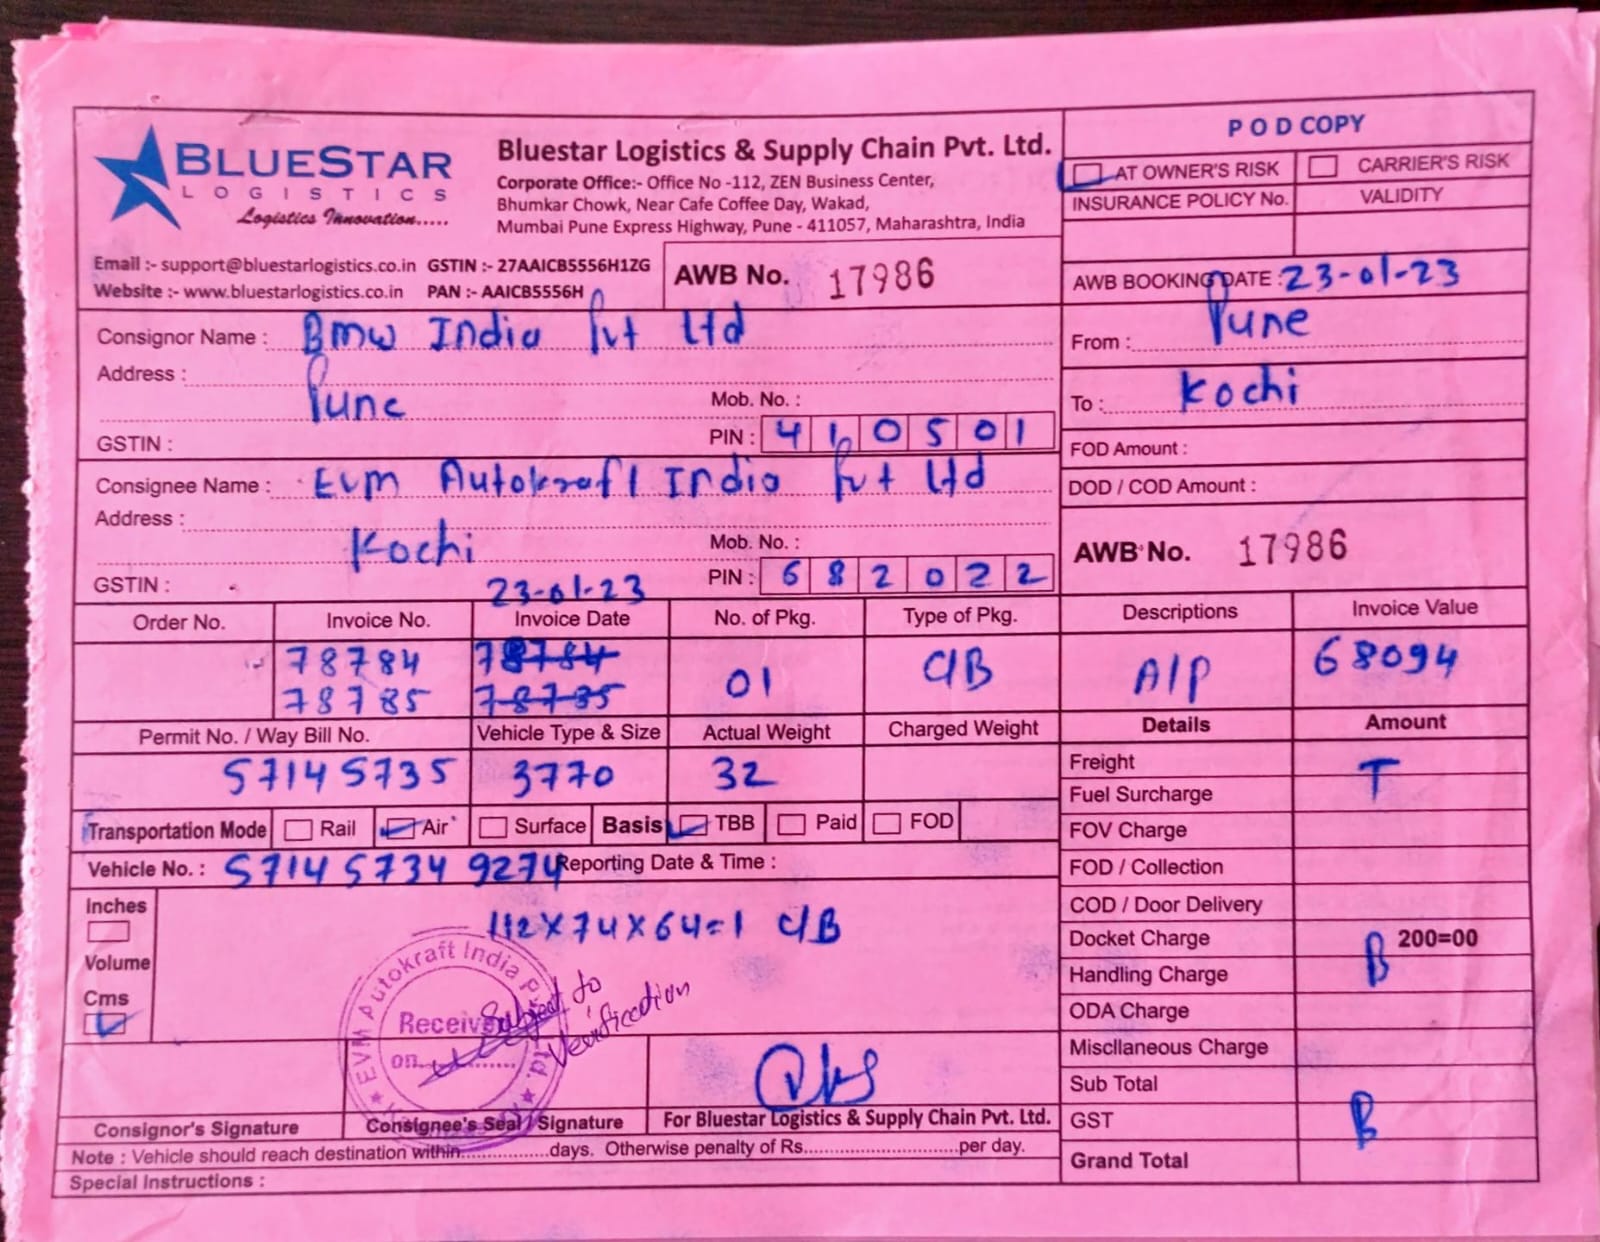 BLUESTAR
LOGISTICS
Logistics Innovation.....
Bluestar Logistics & Supply Chain Pvt. Ltd.
Corporate Office:- Office No -112, ZEN Business Center,
Bhumkar Chowk, Near Cafe Coffee Day, Wakad,
Mumbai Pune Express Highway, Pune - 411057, Maharashtra, India
Email :- support@bluestarlogistics.co.in GSTIN :- 27AAICB5556H1ZG
Website :- www.bluestarlogistics.co.in PAN :- AAICB5556H
AWB No. 17986
POD COPY
AT OWNER'S RISK CARRIER'S RISK
INSURANCE POLICY No. VALIDITY
AWB BOOKING DATE : 23-01-23
From : Pune
To : Kochi
FOD Amount :
DOD / COD Amount :
AWB No. 17986
Consignor Name : Bmw India Pvt Ltd
Address :
Pune
Mob. No. :
GSTIN : PIN : 410501
Consignee Name : Evm Autokraft India Pvt Ltd
Address :
Kochi
Mob. No. :
GSTIN : 23-01-23 PIN : 682022
Order No. Invoice No. Invoice Date No. of Pkg. Type of Pkg. Descriptions Invoice Value
78784 78784 01 C/B A/P 68094
78785 78785
Permit No. / Way Bill No. Vehicle Type & Size Actual Weight Charged Weight Details Amount
57145735 3770 32
Transportation Mode Rail Air Surface Basis TBB Paid FOD
Vehicle No. : 5714 5734 9274 Reporting Date & Time :
Inches
Volume
Cms
112x74x64=1 C/B
Freight T
Fuel Surcharge
FOV Charge
FOD / Collection
COD / Door Delivery
Docket Charge 200=00
Handling Charge B
ODA Charge
Miscllaneous Charge
Sub Total
GST B
Grand Total
EVM Autokraft India Pvt. Ltd.
Received
on
Subject to
Verification
Consignor's Signature Consignee's Seal / Signature For Bluestar Logistics & Supply Chain Pvt. Ltd.
Note : Vehicle should reach destination within................days. Otherwise penalty of Rs............................per day.
Special Instructions :